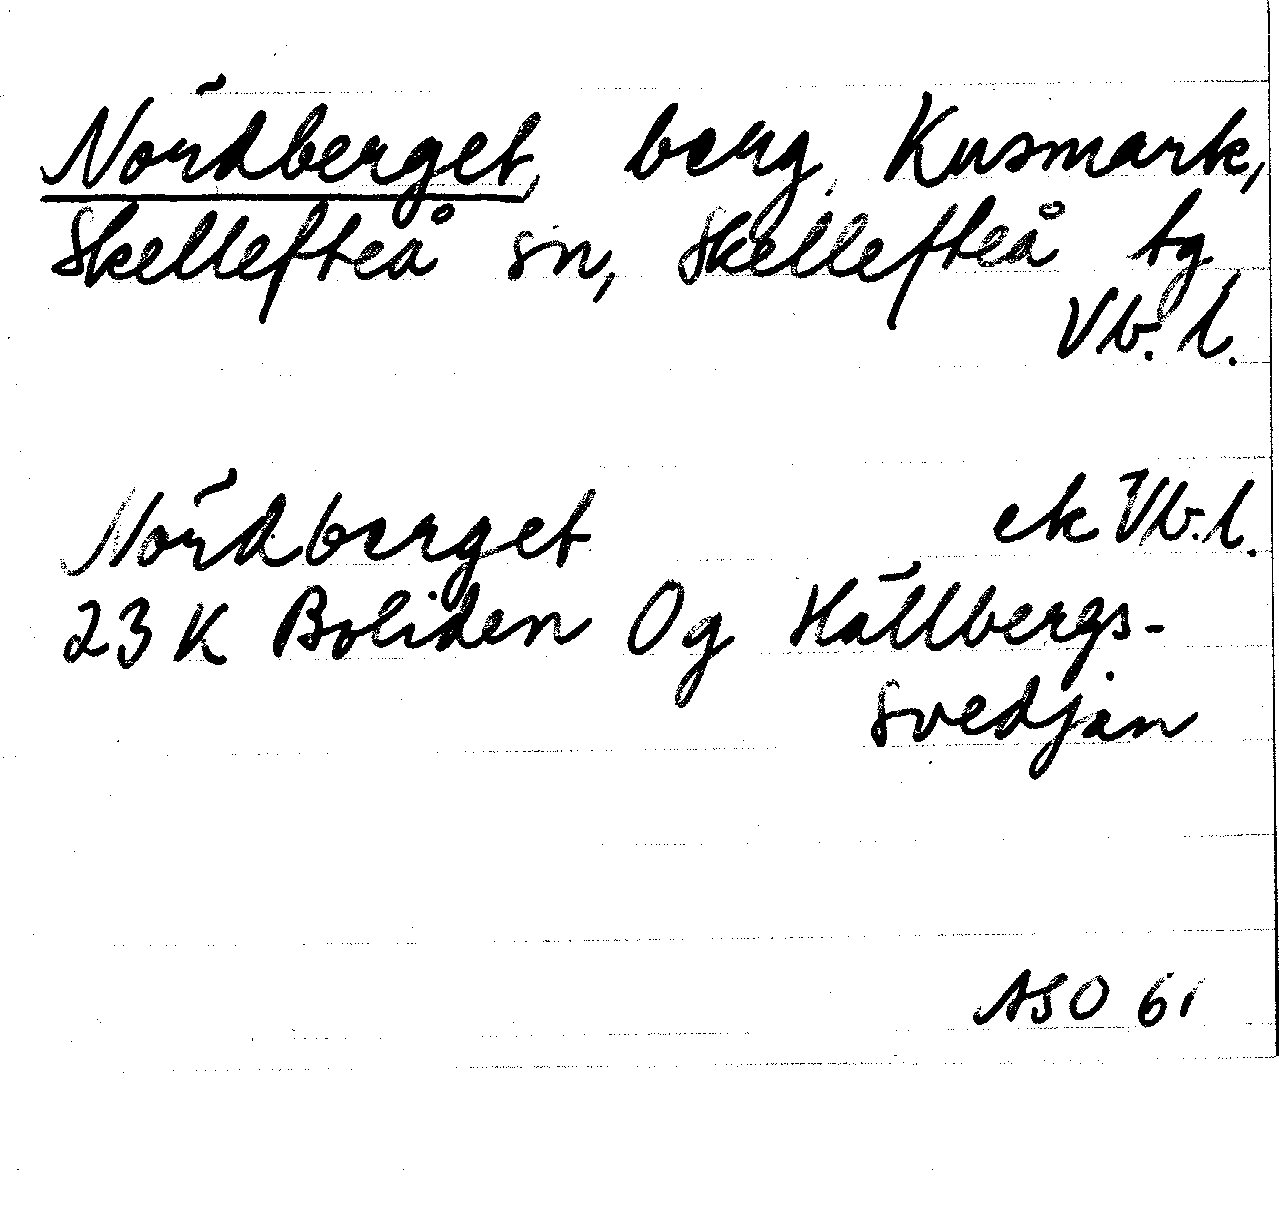 Nördberget, berg, Kusmark,
Skellefteå sn, Skellefteå tg
Vb. l.
Nördberget ek Vb. l.
23 K Boliden Og Hällbergs-
svedjan
ASO 61